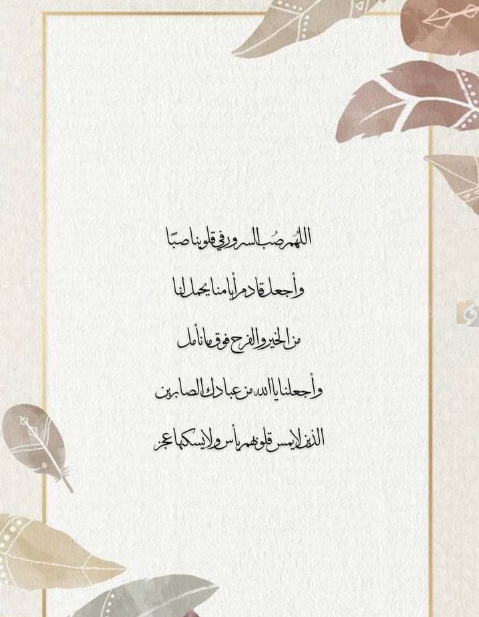 اللهم صُب السرور في قلوبنا صبًا
وأجعل قادم أيامنا يحمل لنا
من الخير والفرح فوق ما نأمل
وأجعلنا يا الله من عبادك الصابرين
الذين لا يمس قلوبهم يأس ولا يسكنها عجز